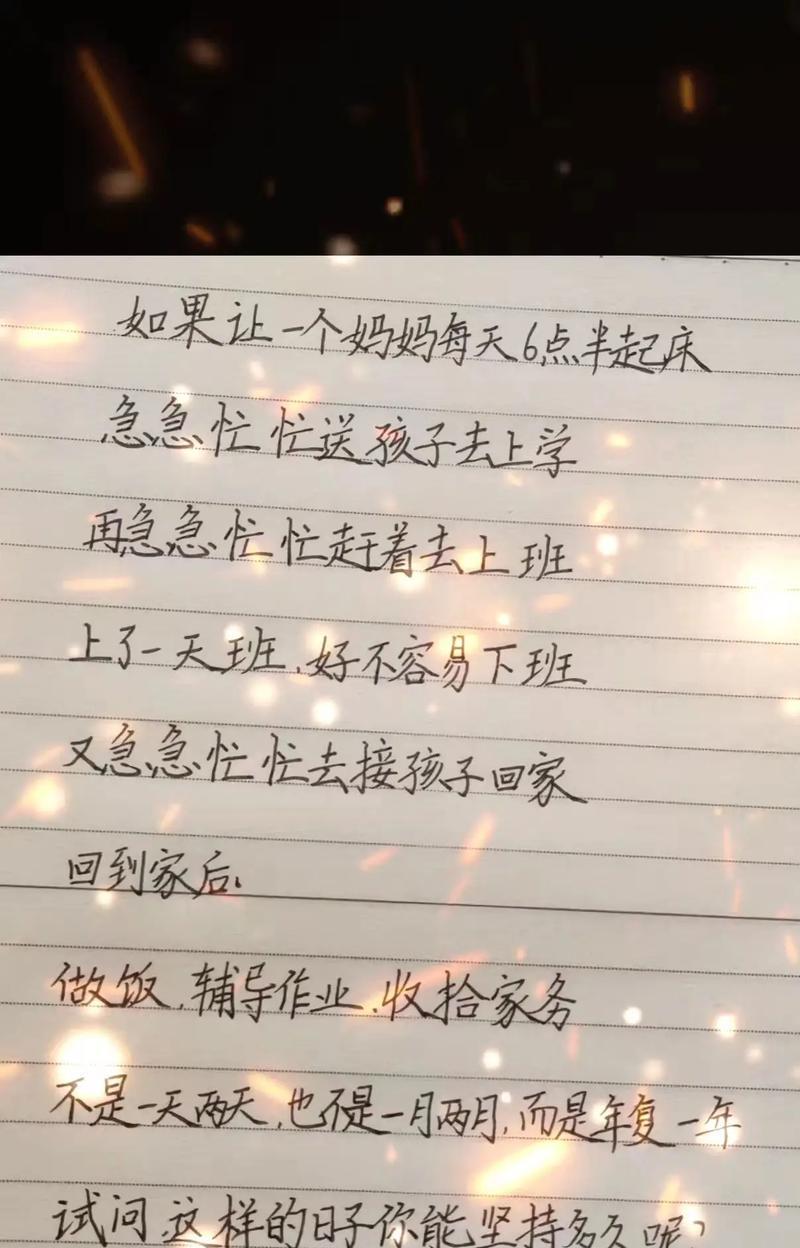 如果让一个妈妈每天6点半起床
急急忙忙送孩子去上学
再急急忙忙赶着去上班
上了一天班,好不容易下班
又急急忙忙去接孩子回家
回到家后,
做饭,辅导作业,收拾家务
不是一天两天,也不是一月两月,而是年复一年
试问,这样的日子你能坚持多久呢?